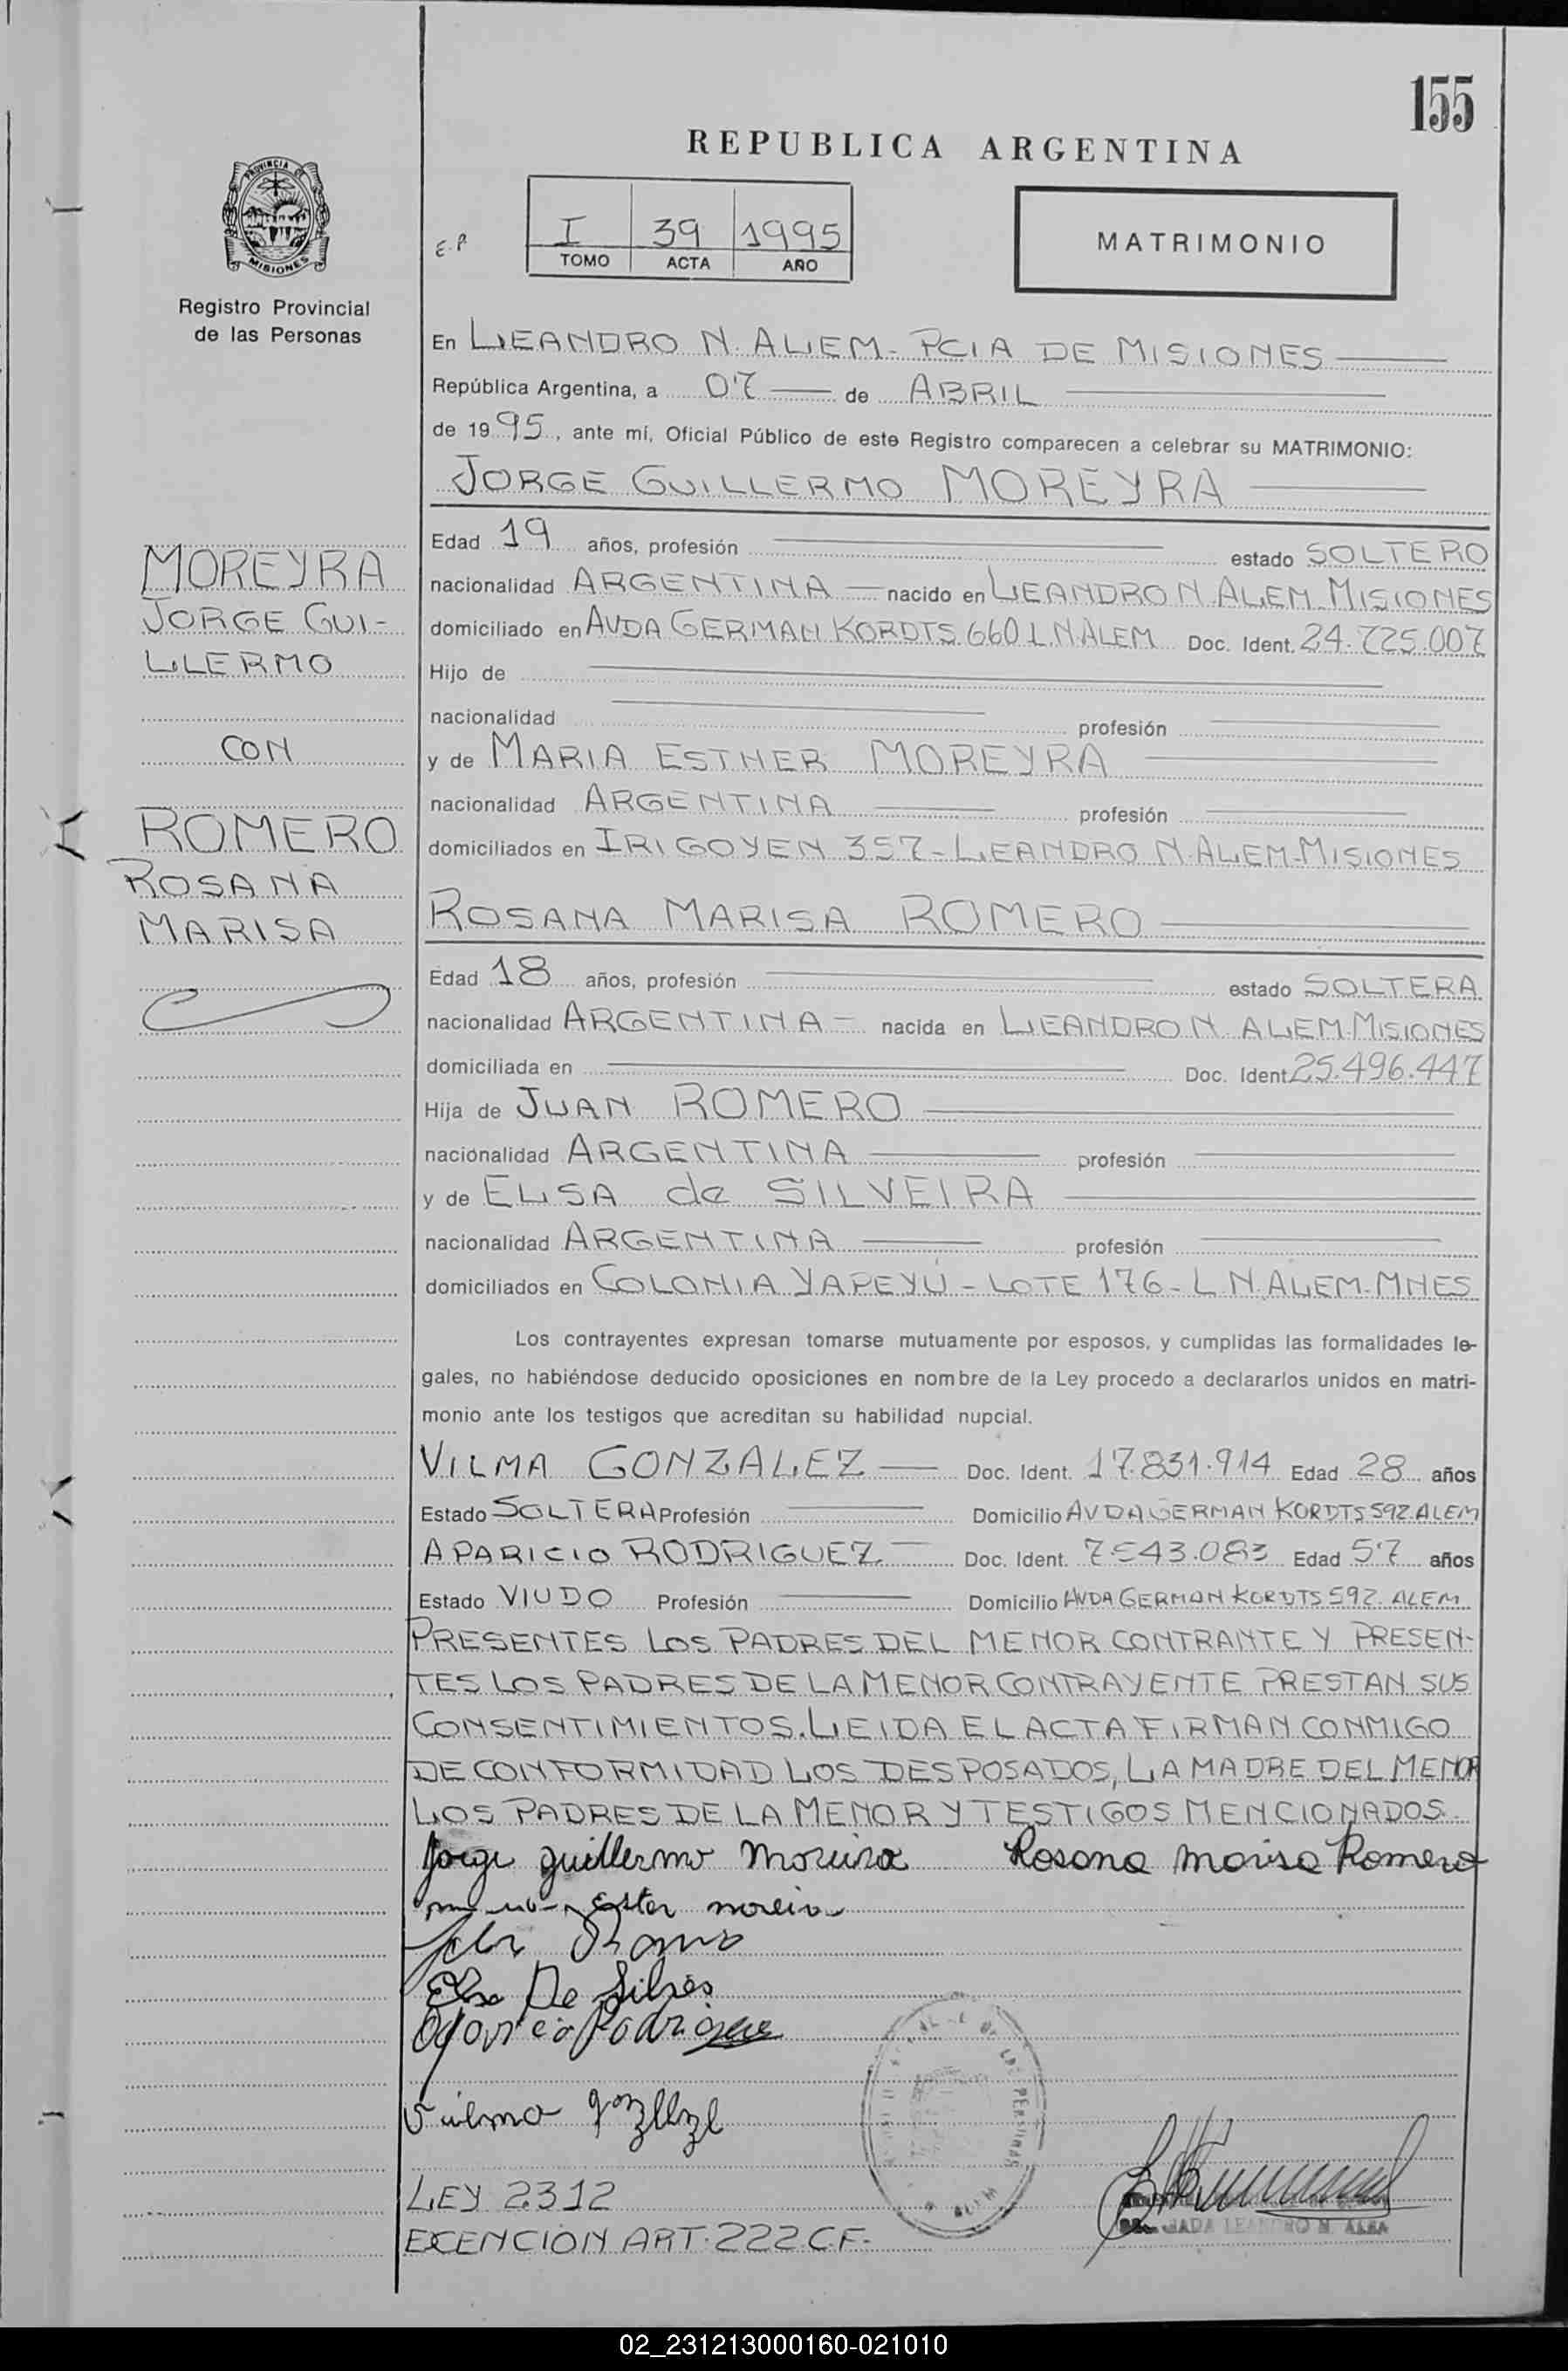 155
REPUBLICA ARGENTINA
PROVINCIA DE
MISIONES
Registro Provincial
de las Personas
E.P
I 39 1995
TOMO ACTA AÑO
MATRIMONIO
En LEANDRO N. ALEM - PCIA DE MISIONES
República Argentina, a 07 de ABRIL
de 1995, ante mí, Oficial Público de este Registro comparecen a celebrar su MATRIMONIO:
JORGE GUILLERMO MOREYRA
MOREYRA
JORGE GUI-
LLERMO
CON
ROMERO
ROSANA
MARISA
Edad 19 años, profesión estado SOLTERO
nacionalidad ARGENTINA nacido en LEANDRO N. ALEM MISIONES
domiciliado en AVDA GERMAN KORDTS 660 L.N.ALEM Doc. Ident. 24.725.007
Hijo de
nacionalidad profesión
y de MARIA ESTHER MOREYRA
nacionalidad ARGENTINA profesión
domiciliados en IRIGOYEN 357 - LEANDRO N. ALEM - MISIONES
ROSANA MARISA ROMERO
Edad 18 años, profesión estado SOLTERA
nacionalidad ARGENTINA - nacida en LEANDRO N ALEM MISIONES
domiciliada en Doc. Ident. 25.496.447
Hija de JUAN ROMERO
nacionalidad ARGENTINA profesión
y de ELISA de SILVEIRA
nacionalidad ARGENTINA profesión
domiciliados en COLONIA YAPEYÚ - LOTE 176 - L N. ALEM - MNES
Los contrayentes expresan tomarse mutuamente por esposos, y cumplidas las formalidades le-
gales, no habiéndose deducido oposiciones en nombre de la Ley procedo a declararlos unidos en matri-
monio ante los testigos que acreditan su habilidad nupcial.
VILMA GONZALEZ Doc. Ident. 17.831.914 Edad 28 años
Estado SOLTERA Profesión Domicilio AVDA GERMAN KORDTS 592. ALEM
APARICIO RODRIGUEZ Doc. Ident. 7.543.083 Edad 57 años
Estado VIUDO Profesión Domicilio AVDA GERMAN KORDTS 592. ALEM
PRESENTES LOS PADRES DEL MENOR CONTRANTE Y PRESEN-
TES LOS PADRES DE LA MENOR CONTRAYENTE PRESTAN SUS
CONSENTIMIENTOS. LEIDA EL ACTA FIRMAN CONMIGO
DE CONFORMIDAD LOS DESPOSADOS, LA MADRE DEL MENOR
LOS PADRES DE LA MENOR Y TESTIGOS MENCIONADOS.
Jorge guillermo Moreira Rosana marisa Romero
Ester moreira
De
Rodrigue
LEY 2312
EXENCION ART. 222 C.F.
LEANDRO N. ALEM
02_231213000160-021010